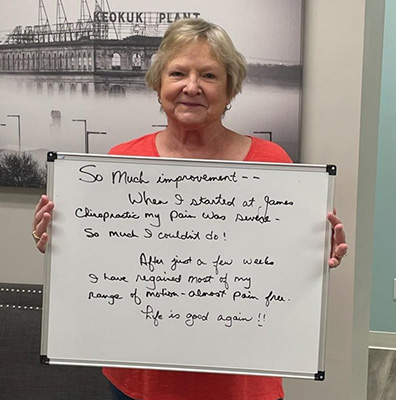 KEOKUK PLANT
So Much improvement--
When I started at James
Chiropractic my Pain was severe-
So much I couldn't do!
After just a few weeks
I have regained most of my
range of motion-almost Pain free.
Life is good again!!